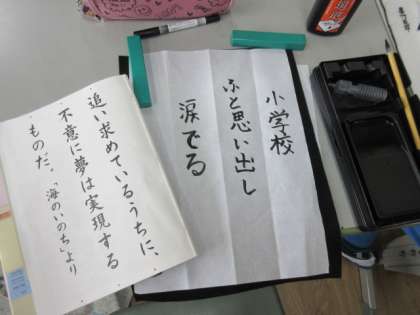 小学校
ふと思い出し
涙でる
追い求めているうちに、
不意に夢は実現する
ものだ。「海のいのち」より